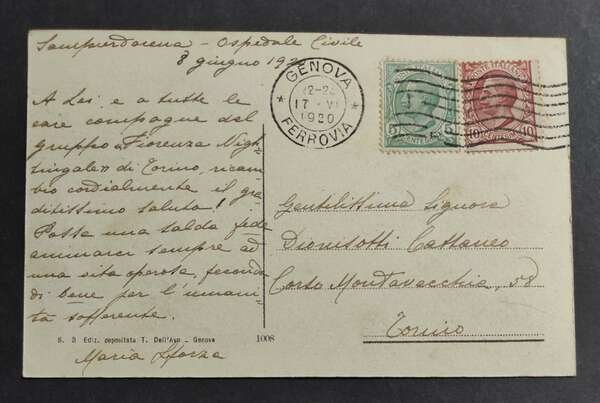 Sampierdarena - Ospedale Civile
8 giugno 192
GENOVA
17 · VI
1920
FERROVIA
5
10
10
A Lei, e a tutte le
care compagne del
gruppo "Fiorenza Nigh-
tingale" di Torino, ricam-
bio cordialmente il gra-
ditissimo saluto!
Possa una salda fede
animarci sempre ad
una vita operosa, feconda
di bene per l'umani-
tà sofferente.
Maria Sforza
Gentilissima Signora
Dionisotti Cattaneo
Corso Montevecchio, 58
Torino
S. 3 Ediz. depositata T. Dell'Avo - Genova
1008